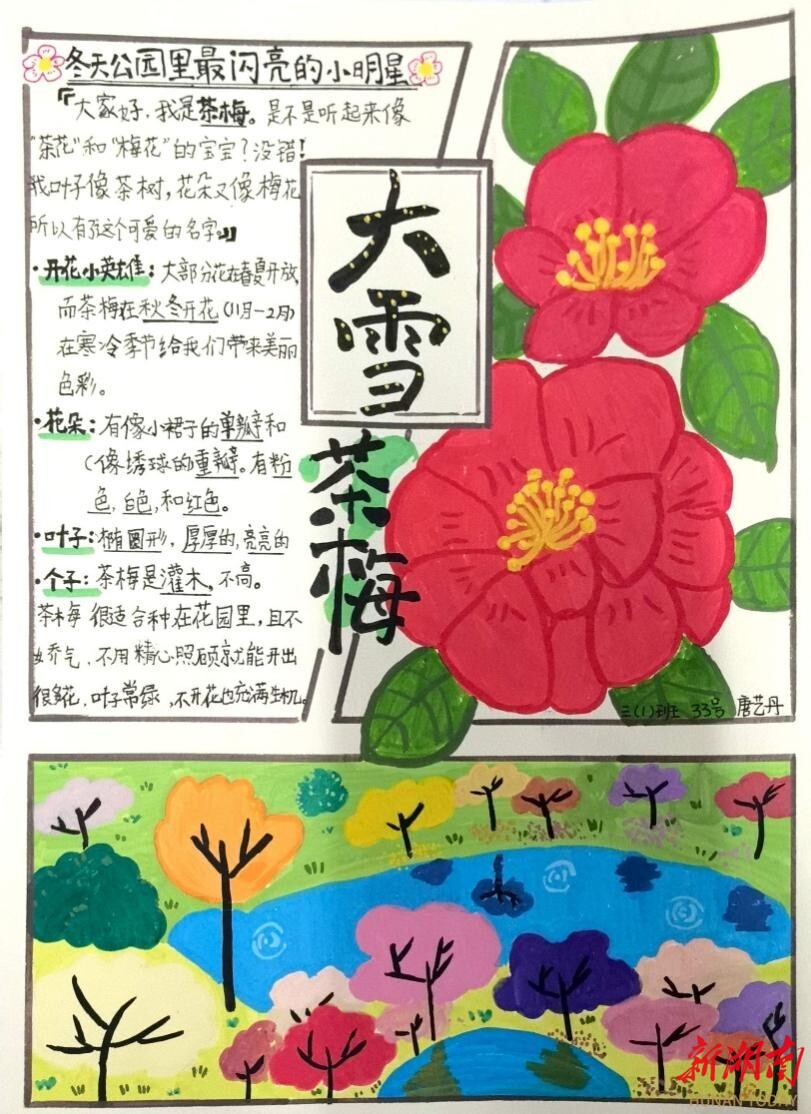 冬天公园里最闪亮的小明星
『大家好，我是茶梅。是不是听起来像
"茶花"和"梅花"的宝宝？没错！
我叶子像茶树，花朵又像梅花
所以有了这个可爱的名字。』
·开花小英雄：大部分花在春夏开放，
而茶梅在秋冬开花（11月-2月）
在寒冷季节给我们带来美丽
色彩。
·花朵：有像小裙子的单瓣和
（像绣球的）重瓣。有粉
色，白色，和红色。
·叶子：椭圆形，厚厚的，亮亮的
·个子：茶梅是灌木，不高。
茶梅很适合种在花园里，且不
娇气，不用精心照顾就能开出
很多花，叶子常绿，不开花也充满生机。
大雪
茶梅
三(1)班 33号 唐艺丹
新湖南
HUNAN TODAY